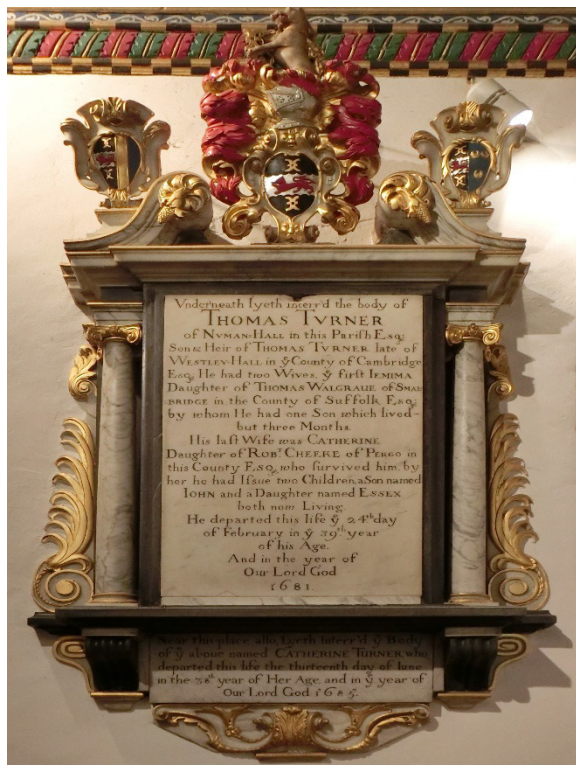 Vnderneath lyeth interr'd the body of
THOMAS TVRNER
of NVMAN-HALL in this Parish Esq;
Son & Heir of THOMAS TVRNER late of
WESTLEY-HALL in ẙ County of Cambridge
Esq; He had two Wives. ẙ first IEMIMA
Daughter of THOMAS WALGRAUE of SMAL
BRIDGE in the County of Suffolk Esq;
by whom He had one Son which lived
but three Months.
His last Wife was CATHERINE
Daughter of ROBᵗ. CHEEKE of PERGO in
this County Esq, who survived him, by
her he had Issue two Children, a Son named
IOHN and a Daughter named ESSEX
both now Living.
He departed this life ẙ 24th day
of February in ẙ 39th year
of his Age.
And in the year of
Our Lord God
1681.
Near this place allso, Lyeth Interr'd ẙ Body
of ẙ aboue named CATHERINE TURNER, who
departed this life the thirteenth day of Iune
in the 38th year of Her Age, and in ẙ year of
Our Lord God 1685.